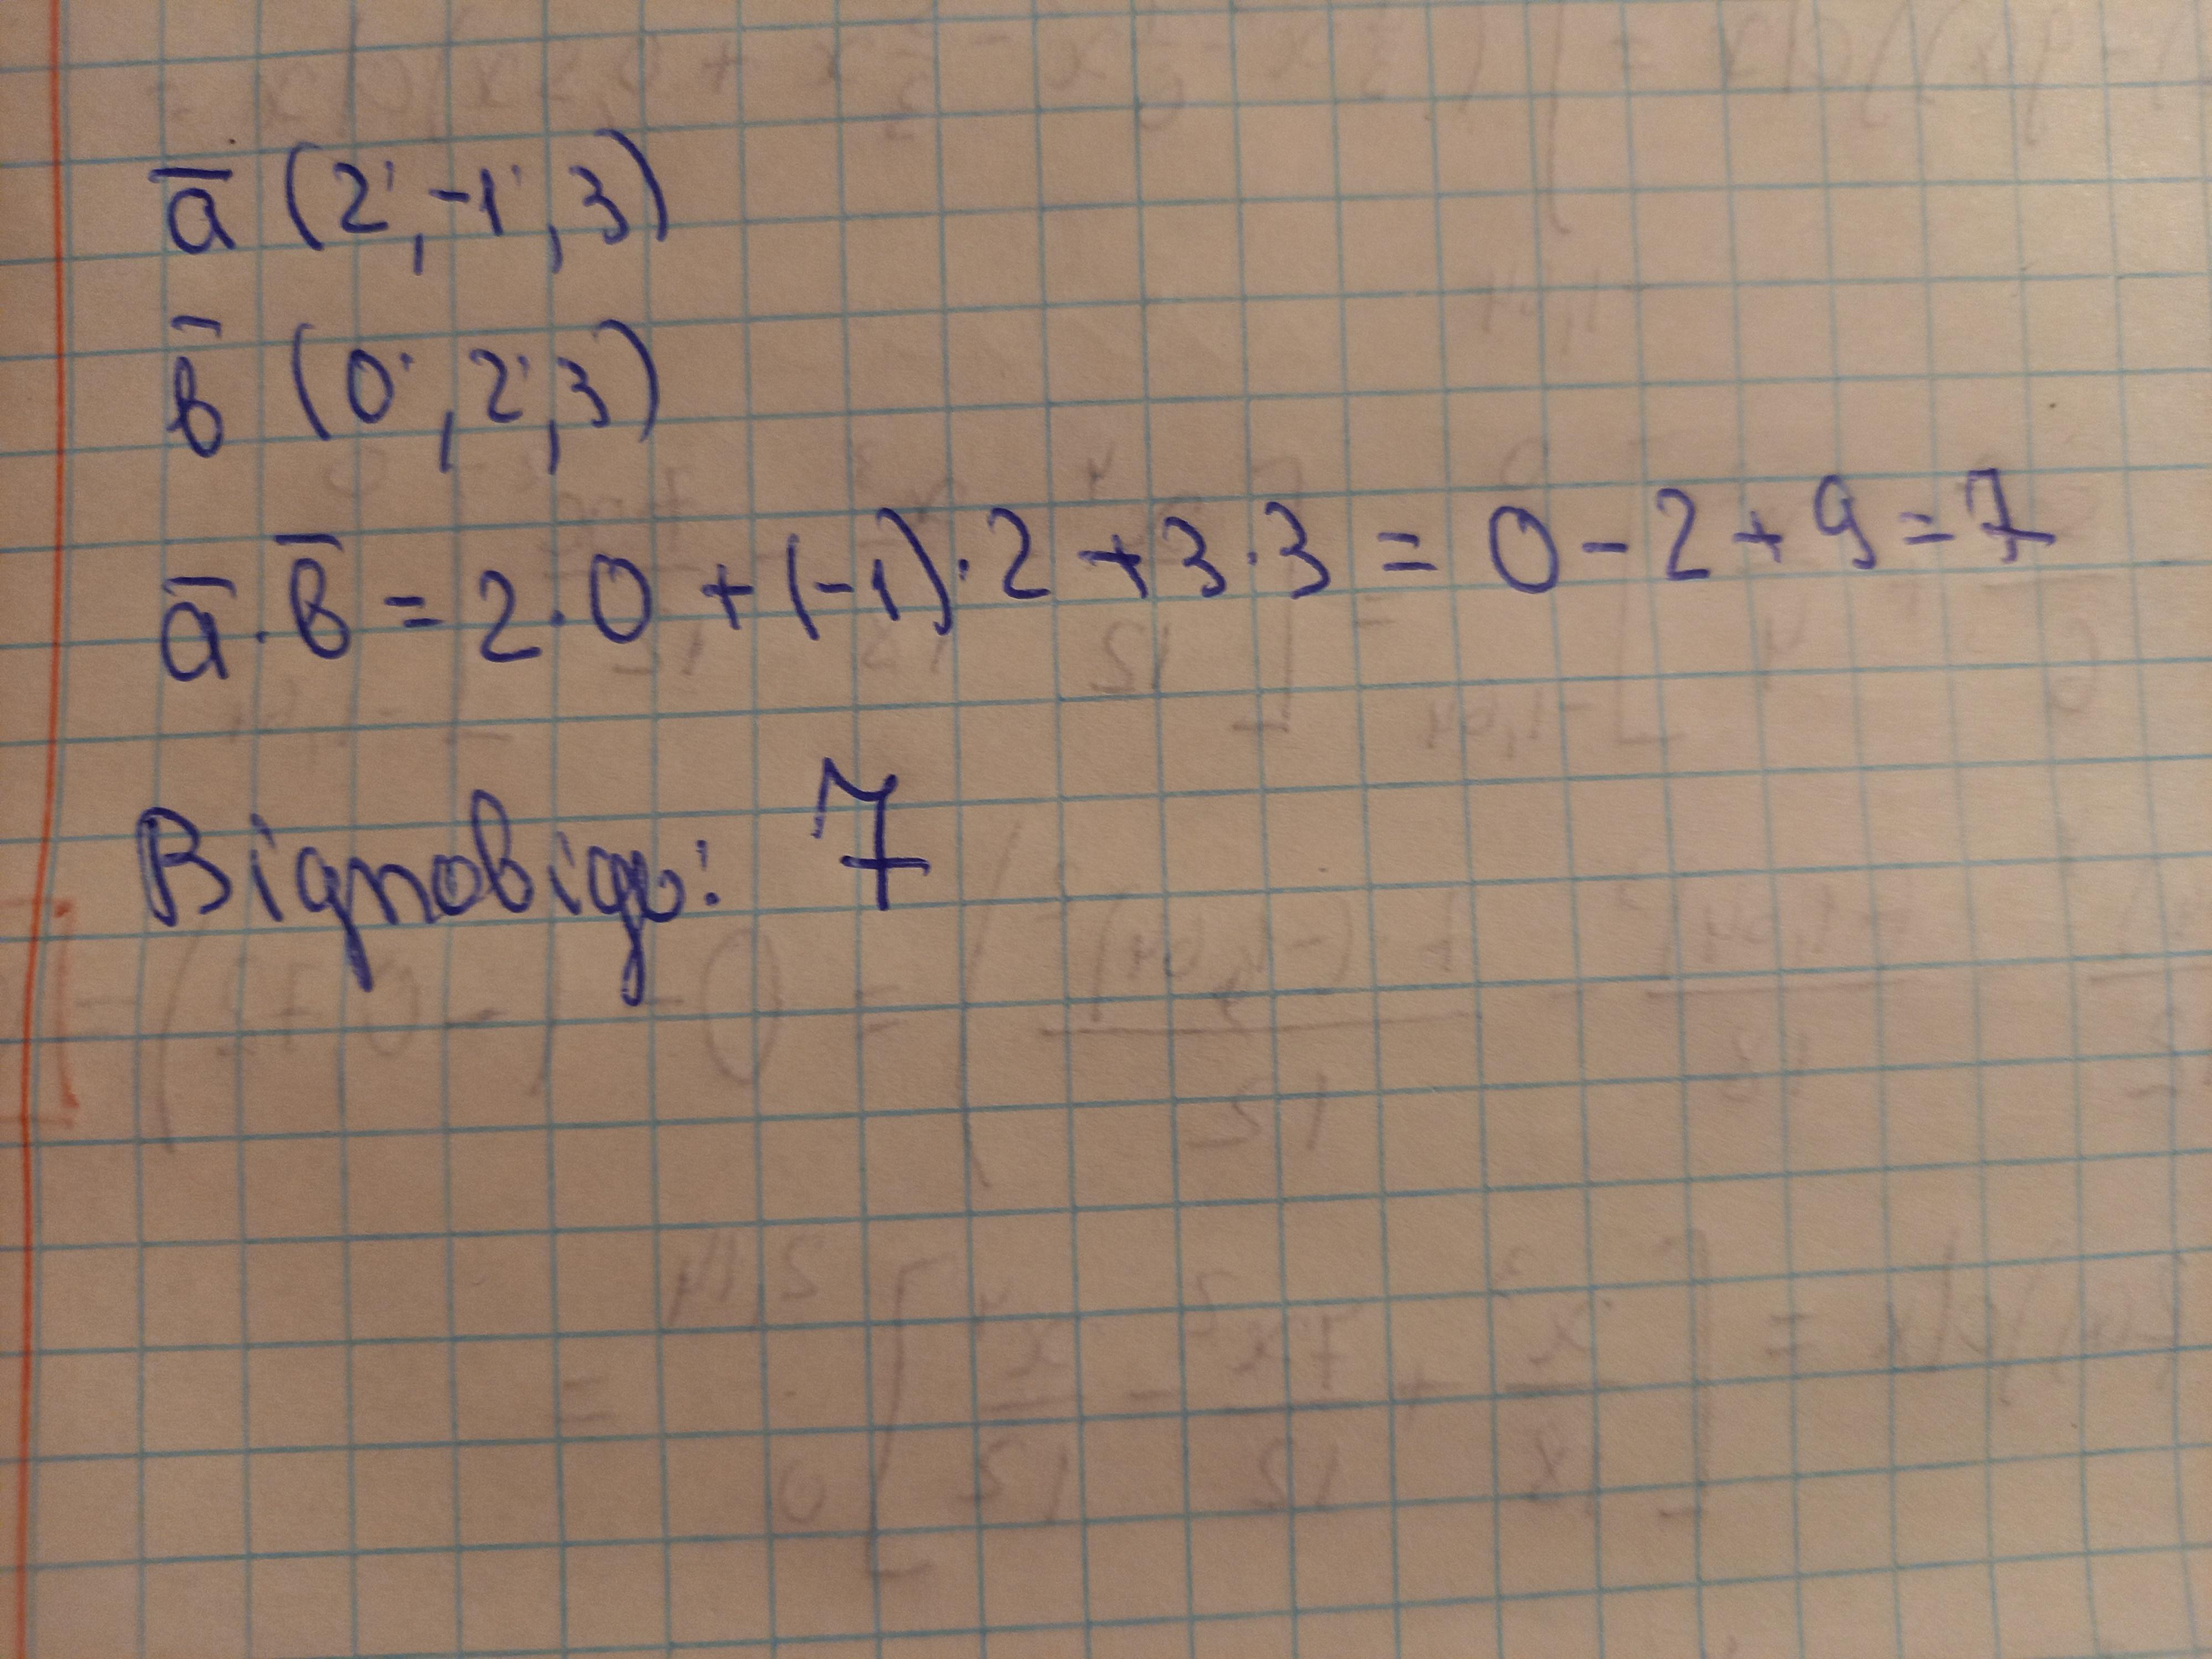 a̅ (2; -1; 3)
b̅ (0; 2; 3)
a̅ · b̅ = 2 · 0 + (-1) · 2 + 3 · 3 = 0 - 2 + 9 = 7
Відповідь: 7